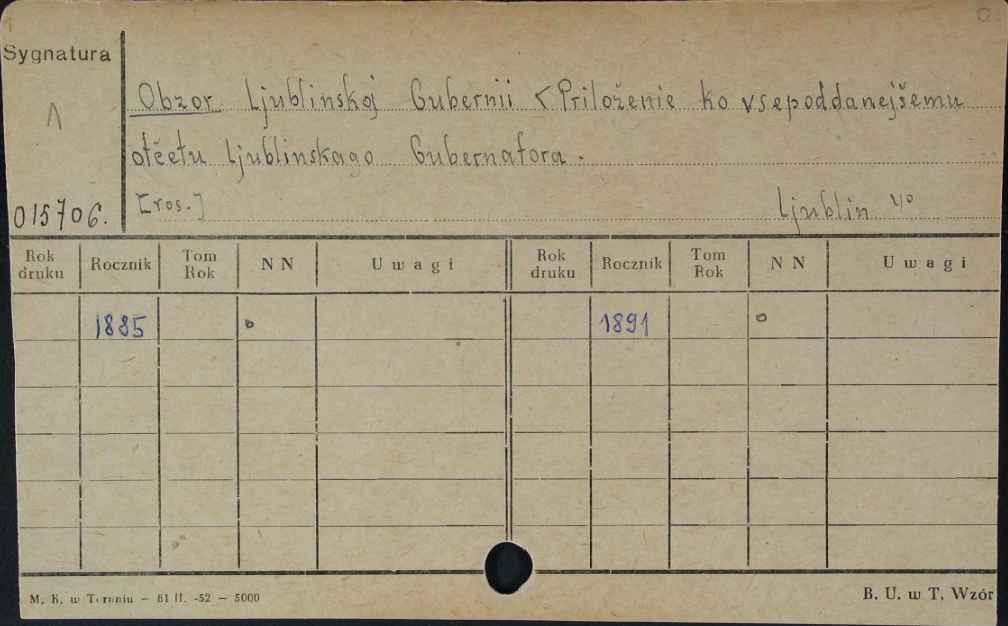 Sygnatura
1
Obzor Ljublinskoj Gubernii < Priloženie ko vsepoddanejšemu
otčetu Ljublinskago Gubernatora.
015706.
[ros.]
Ljublin 4°
Rok druku Rocznik Tom Rok N N Uwagi Rok druku Rocznik Tom Rok N N Uwagi
1885 1891
M. K. w Toruniu – 81 II. -52 – 5000
B. U. w T. Wzór